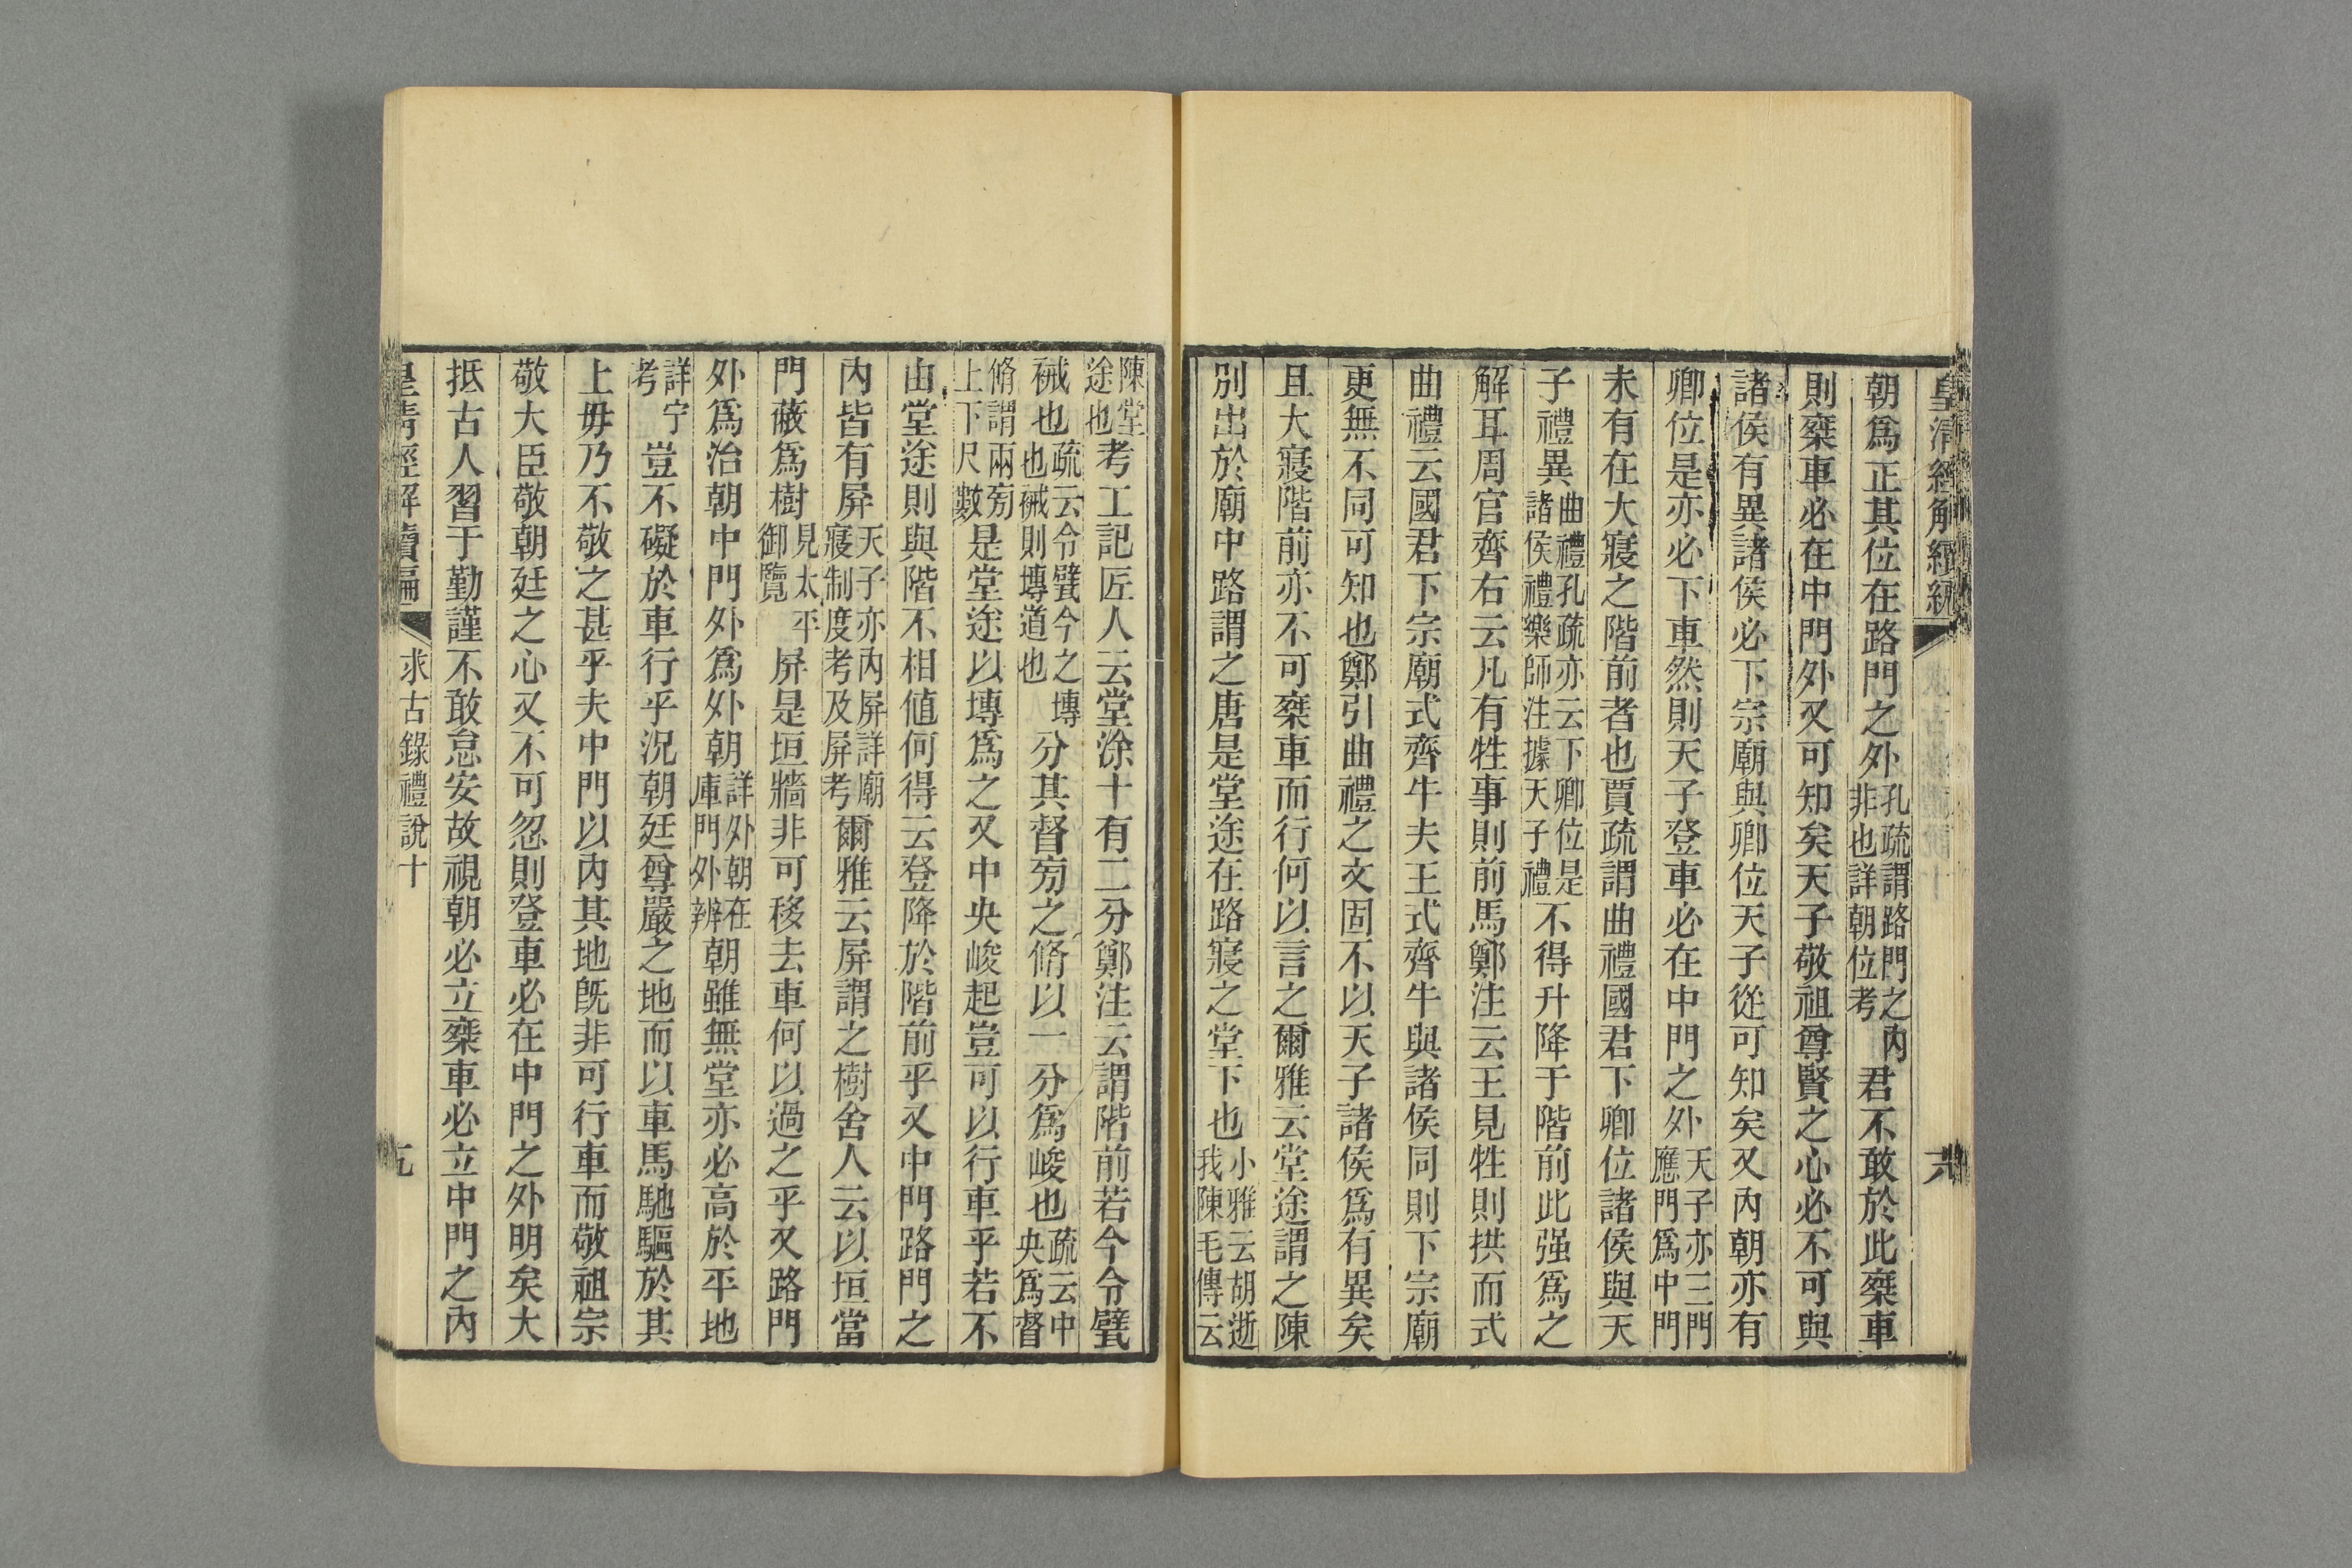 皇清經解續編
六
朝爲正其位在路門之外孔疏謂路門之內非也詳朝位考君不敢於此椉車
則椉車必在中門外又可知矣天子敬祖尊賢之心必不可與
諸侯有異諸侯必下宗廟與卿位天子從可知矣又內朝亦有
卿位是亦必下車然則天子登車必在中門之外天子亦三門應門爲中門
未有在大寢之階前者也賈疏謂曲禮國君下卿位諸侯與天
子禮異曲禮孔疏亦云下卿位是諸侯禮樂師注據天子禮不得升降于階前此强爲之
解耳周官齊右云凡有牲事則前馬鄭注云王見牲則拱而式
曲禮云國君下宗廟式齊牛夫王式齊牛與諸侯同則下宗廟
更無不同可知也鄭引曲禮之文固不以天子諸侯爲有異矣
且大寢階前亦不可椉車而行何以言之爾雅云堂途謂之陳
別出於廟中路謂之唐是堂途在路寢之堂下也小雅云胡逝我陳毛傳云
陳堂途也考工記匠人云堂涂十有二分鄭注云謂階前若今令甓
祴也疏云令甓今之塼也祴則塼道也分其督旁之脩以一分爲峻也疏云中央爲督
脩謂兩旁上下尺數是堂途以塼爲之又中央峻起豈可以行車乎若不
由堂途則與階不相値何得云登降於階前乎又中門路門之
內皆有屏天子亦內屏詳廟寢制度考及屏考爾雅云屏謂之樹舍人云以垣當
門蔽爲樹見太平御覽屏是垣牆非可移去車何以過之乎又路門
外爲治朝中門外爲外朝詳外朝在庫門外辨朝雖無堂亦必高於平地
詳宁考豈不礙於車行乎況朝廷尊嚴之地而以車馬馳驅於其
上毋乃不敬之甚乎夫中門以內其地旣非可行車而敬祖宗
敬大臣敬朝廷之心又不可忽則登車必在中門之外明矣大
抵古人習于勤謹不敢怠安故視朝必立椉車必立中門之內
皇清經解續編
求古錄禮說十
九